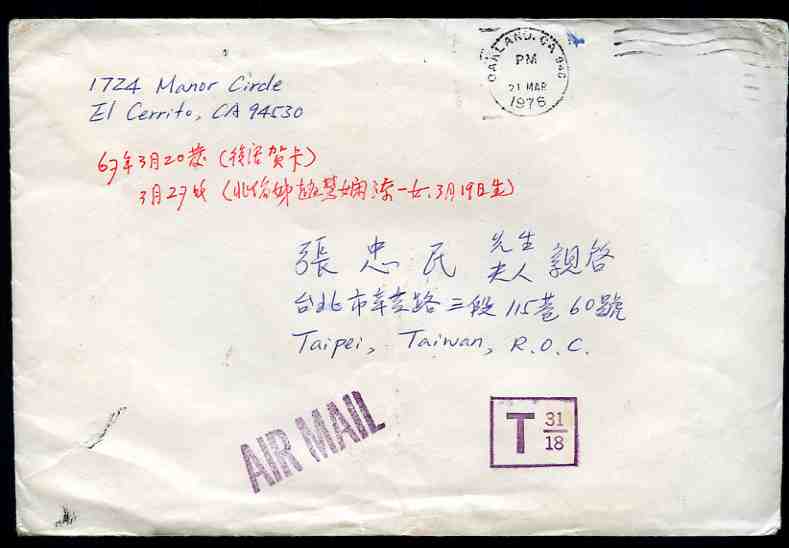 1724 Manor Circle
El Cerrito, CA 94530
OAKLAND, CA 946
PM
21 MAR
1978
67年3月20發（結婚賀卡）
3月27收（ 一女,3月19日生）
張忠民 先生 夫人 親啓
台北市辛亥路三段115巷60號
Taipei, Taiwan, R.O.C.
AIR MAIL
T 31
18